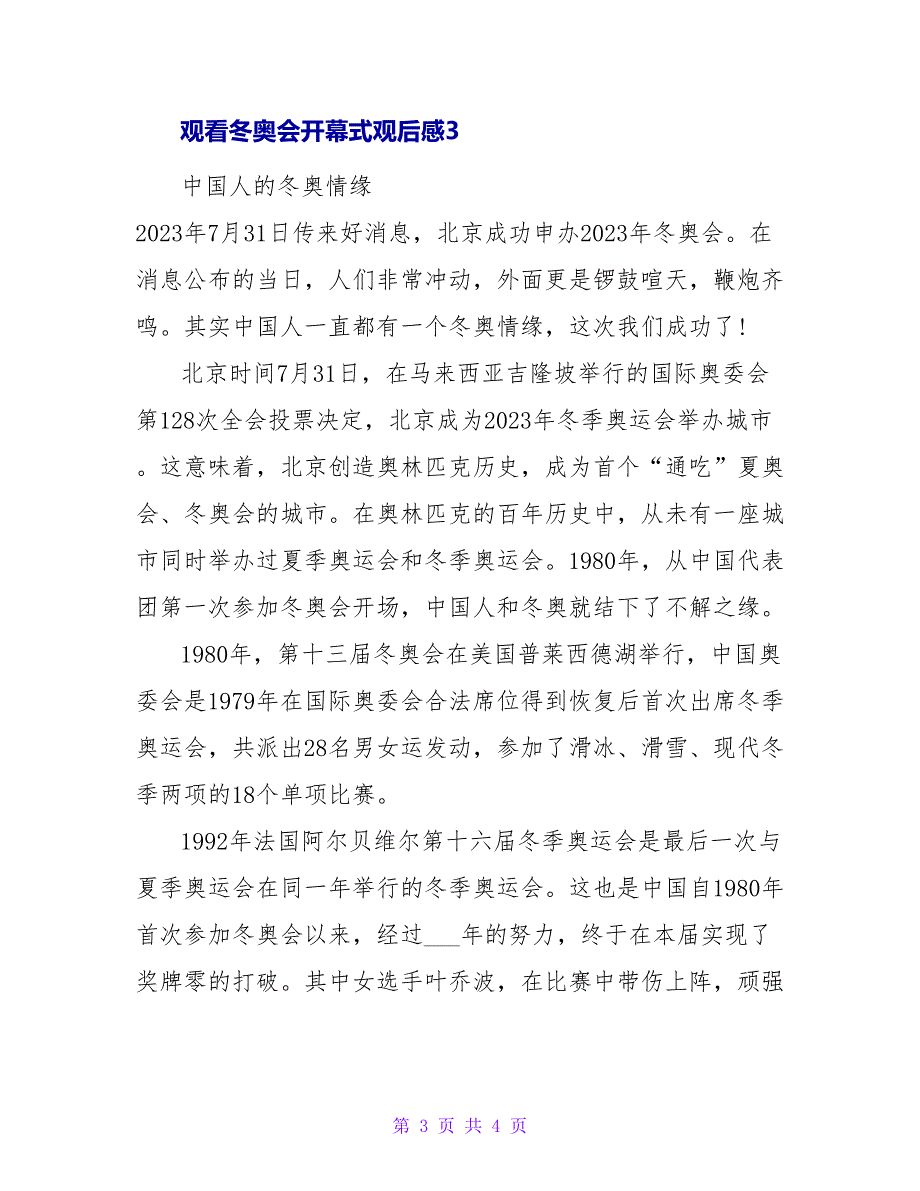 观看冬奥会开幕式观后感3
中国人的冬奥情缘
2023年7月31日传来好消息，北京成功申办2023年冬奥会。在
消息公布的当日，人们非常冲动，外面更是锣鼓喧天，鞭炮齐
鸣。其实中国人一直都有一个冬奥情缘，这次我们成功了！
北京时间7月31日，在马来西亚吉隆坡举行的国际奥委会
第128次全会投票决定，北京成为2023年冬季奥运会举办城市
。这意味着，北京创造奥林匹克历史，成为首个“通吃”夏奥
会、冬奥会的城市。在奥林匹克的百年历史中，从未有一座城
市同时举办过夏季奥运会和冬季奥运会。1980年，从中国代表
团第一次参加冬奥会开场，中国人和冬奥就结下了不解之缘。
1980年，第十三届冬奥会在美国普莱西德湖举行，中国奥
委会是1979年在国际奥委会合法席位得到恢复后首次出席冬季
奥运会，共派出28名男女运发动，参加了滑冰、滑雪、现代冬
季两项的18个单项比赛。
1992年法国阿尔贝维尔第十六届冬季奥运会是最后一次与
夏季奥运会在同一年举行的冬季奥运会。这也是中国自1980年
首次参加冬奥会以来，经过___年的努力，终于在本届实现了
奖牌零的打破。其中女选手叶乔波，在比赛中带伤上阵，顽强
第 3 页 共 4 页